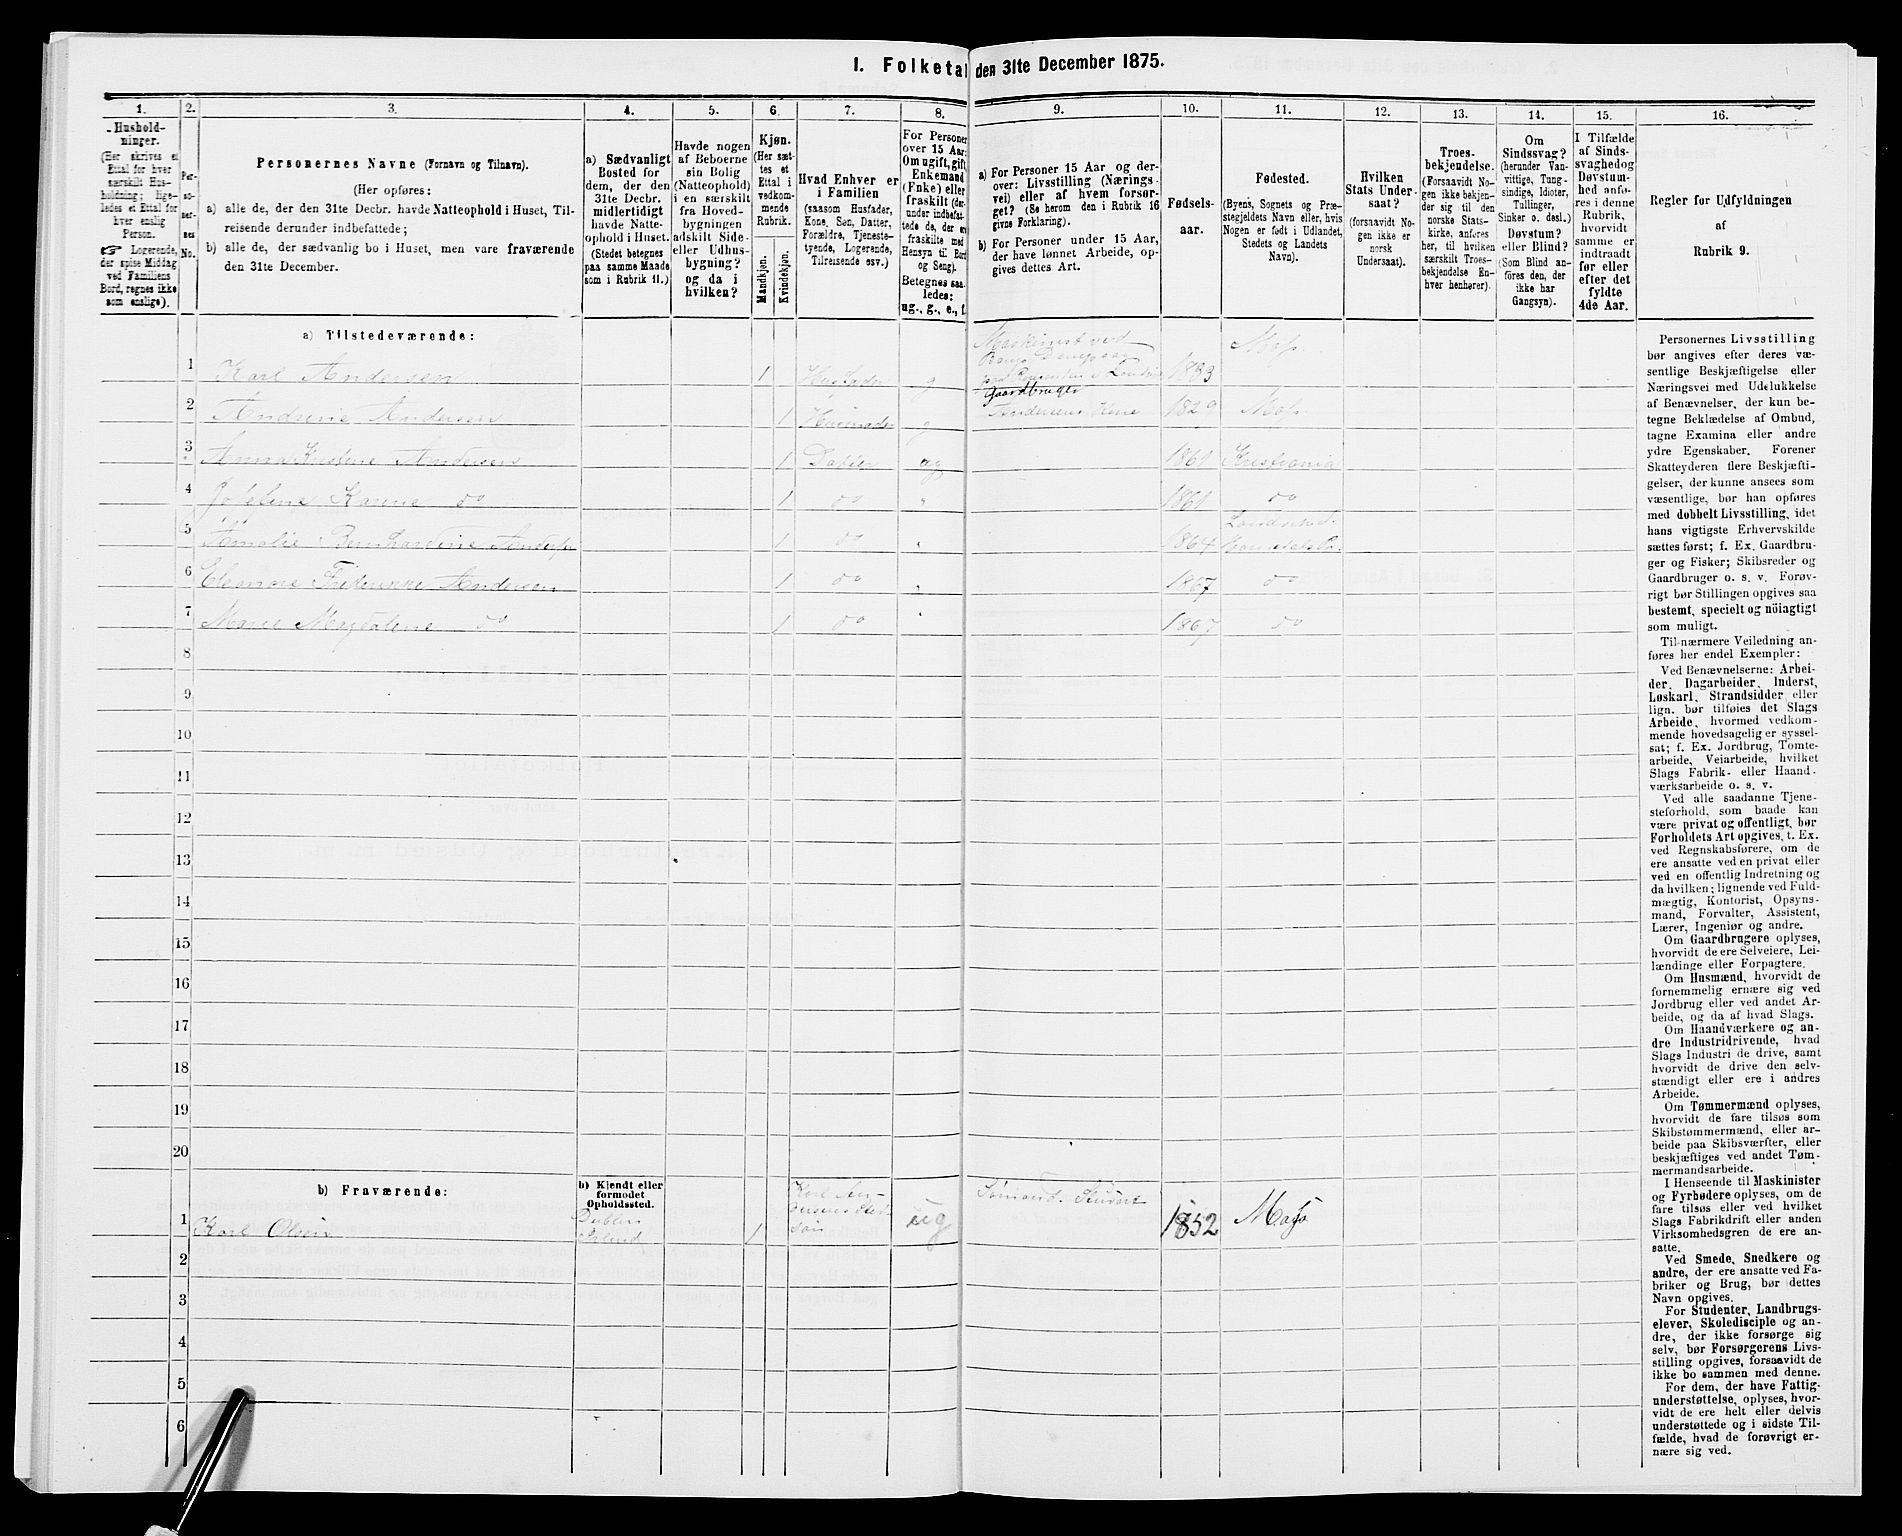 I. Folketal den 31te December 1875.
1. 2. 3. 4. 5. 6. 7. 8. 9. 10. 11. 12. 13. 14. 15. 16.
Hushold-
ninger.
(Her skrives et
Ettal for hver
særskilt Hus-
holdning; lige-
ledes et Ettal for
hver enslig
Person.
☞ Logerende,
der spise Middag
ved Familiens
Bord, regnes ikke
som enslige).
Per-
so-
ner-
nes
No.
Personernes Navne (Fornavn og Tilnavn).
(Her opføres:
a) alle de, der den 31te Decbr. havde Natteophold i Huset, Til-
reisende derunder indbefattede;
b) alle de, der sædvanlig bo i Huset, men vare fraværende
den 31te December.
a) Sædvanligt
Bosted for
dem, der den
31te Decbr.
midlertidigt
havde Natte-
ophold i Huset.
(Stedet betegnes
paa samme Maade
som i Rubrik 11.)
Havde nogen
af Beboerne
sin Bolig
(Natteophold)
i en særskilt
fra Hoved-
bygningen
adskilt Side-
eller Udhus-
bygning?
og da i
hvilken?
Kjøn.
(Her sæt-
tes et
Ettal i
vedkom-
mende
Rubrik.
Mandkjøn.
Kvindekjøn.
Hvad Enhver er
i Familien
(saasom Husfader,
Kone, Søn, Datter,
Forældre, Tjeneste-
tyende, Logerende,
Tilreisende osv.).
For Personer
over 15 Aar:
Om ugift, gift,
Enkemand
(Enke) eller
fraskilt (der-
under indbefat-
tede de, der ere
fraskilte med
Hensyn til Bord
og Seng).
Betegnes saa-
ledes:
ug., g., e., f.
a) For Personer 15 Aar og der-
over: Livsstilling (Nærings-
vei) eller af hvem forsør-
get? (Se herom den i Rubrik 16
givne Forklaring).
b) For Personer under 15 Aar,
der have lønnet Arbeide, op-
gives dettes Art.
Fødsels-
aar.
Fødested.
(Byens, Sognets og Præ-
stegjeldets Navn eller, hvis
Nogen er født i Udlandet,
Stedets og Landets
Navn).
Hvilken
Stats Under-
saat?
(forsaavidt No-
gen ikke er
norsk
Undersaat).
Troes-
bekjendelse.
(Forsaavidt No-
gen ikke bekjen-
der sig til den
norske Stats-
kirke, anføres
her, til hvilken
særskilt Troes-
bekjendelse En-
hver henhører).
Om
Sindssvag?
(herunder Van-
vittige, Tung-
sindige, Idioter,
Tullinger,
Sinker o. desl.)
Døvstum?
eller Blind?
(Som Blind an-
føres den, der
ikke har
Gangsyn).
I Tilfælde
af Sinds-
svaghed og
Døvstum-
hed anfø-
res i denne
Rubrik,
hvorvidt
samme er
indtraadt
før eller
efter det
fyldte
4de Aar.
Regler for Udfyldningen
af
Rubrik 9.
a) Tilstedeværende:
1 Karl Andersen 1 Husfader g Maskinist ved
Gaardbruger 1833 Moss
2 Andrine Andersen 1 Husmoder g Andersens Kone 1829 Moss
3 Anna Kristine Andersen 1 Datter ug 1861 Kristiania
4 Josefine Karine do 1 do " 1861 do
5 Amalie Bernhardine Andersen 1 do " 1864
6 Eleonore Frederikke Andersen 1 do " 1867 do
7 Marie Magdalene do 1 do " 1867 do
8
9
10
11
12
13
14
15
16
17
18
19
20
b) Fraværende:
b) Kjendt eller
formodet
Opholdssted.
1 Karl Olsen Dublin
Irland 1 Karl An-
dersens Sted-
søn ug Sømand. Stuart 1852 Moss
2
3
4
5
6
Personernes Livsstilling
bør angives efter deres væ-
sentlige Beskjæftigelse eller
Næringsvei med Udelukkelse
af Benævnelser, der kun be-
tegne Beklædelse af Ombud,
tagne Examina eller andre
ydre Egenskaber. Forener
Skatteyderen flere Beskjæfti-
gelser, der kunne ansees som
væsentlige, bør han opføres
med dobbelt Livsstilling, idet
hans vigtigste Erhvervskilde
sættes først; f. Ex. Gaardbru-
ger og Fisker; Skibsreder og
Gaardbruger o. s. v. Forøv-
rigt bør Stillingen opgives saa
bestemt, specielt og nöiagtigt
som muligt.
Til nærmere Veiledning an-
føres her endel Exempler:
Ved Benævnelserne: Arbei-
der, Dagarbeider, Inderst,
Løskarl, Strandsidder eller
lign. bør tilføies det Slags
Arbeide, hvormed vedkom-
mende hovedsagelig er syssel-
sat; f. Ex. Jordbrug, Tomte-
arbeide, Veiarbeide, hvilket
Slags Fabrik- eller Haand-
værksarbeide o. s. v.
Ved alle saadanne Tjene-
steforhold, som baade kan
være privat og offentligt, bør
Forholdets Art opgives, t. Ex.
ved Regnskabsførere, om de
ere ansatte ved en privat eller
ved en offentlig Indretning og
da hvilken; lignende ved Fuld-
mægtig, Kontorist, Opsyns-
mand, Forvalter, Assistent,
Lærer, Ingeniør og andre.
Om Gaardbrugere oplyses,
hvorvidt de ere Selveiere, Lei-
lændinge eller Forpagtere.
Om Husmænd, hvorvidt de
fornemmelig ernære sig ved
Jordbrug eller ved andet Ar-
beide, og da af hvad Slags.
Om Haandværkere og an-
dre Industridrivende, hvad
Slags Industri de drive, samt
hvorvidt de drive den selv-
stændigt eller ere i andres
Arbeide.
Om Tømmermænd oplyses,
hvorvidt de fare tilsøs som
Skibstømmermænd, eller ar-
beide paa Skibsværfter, eller
beskjæftiges ved andet Tøm-
mermandsarbeide.
I Henseende til Maskinister
og Fyrbødere oplyses, om de
fare tilsøs eller ved hvilket
Slags Fabrikdrift eller anden
Virksomhedsgren de ere an-
satte.
Ved Smede, Snedkere og
andre, der ere ansatte ved Fa-
briker og Brug, bør dettes
Navn opgives.
For Studenter, Landbrugs-
elever, Skoledisciple og an-
dre, der ikke forsørge sig
selv, bør Forsørgerens Livs-
stilling opgives, forsaavidt de
ikke bo sammen med denne.
For dem, der have Fattig-
understøttelse, oplyses, hvor-
vidt de ere helt eller delvis
understøttede og i sidste Til-
fælde, hvad de forøvrigt er-
nære sig ved.